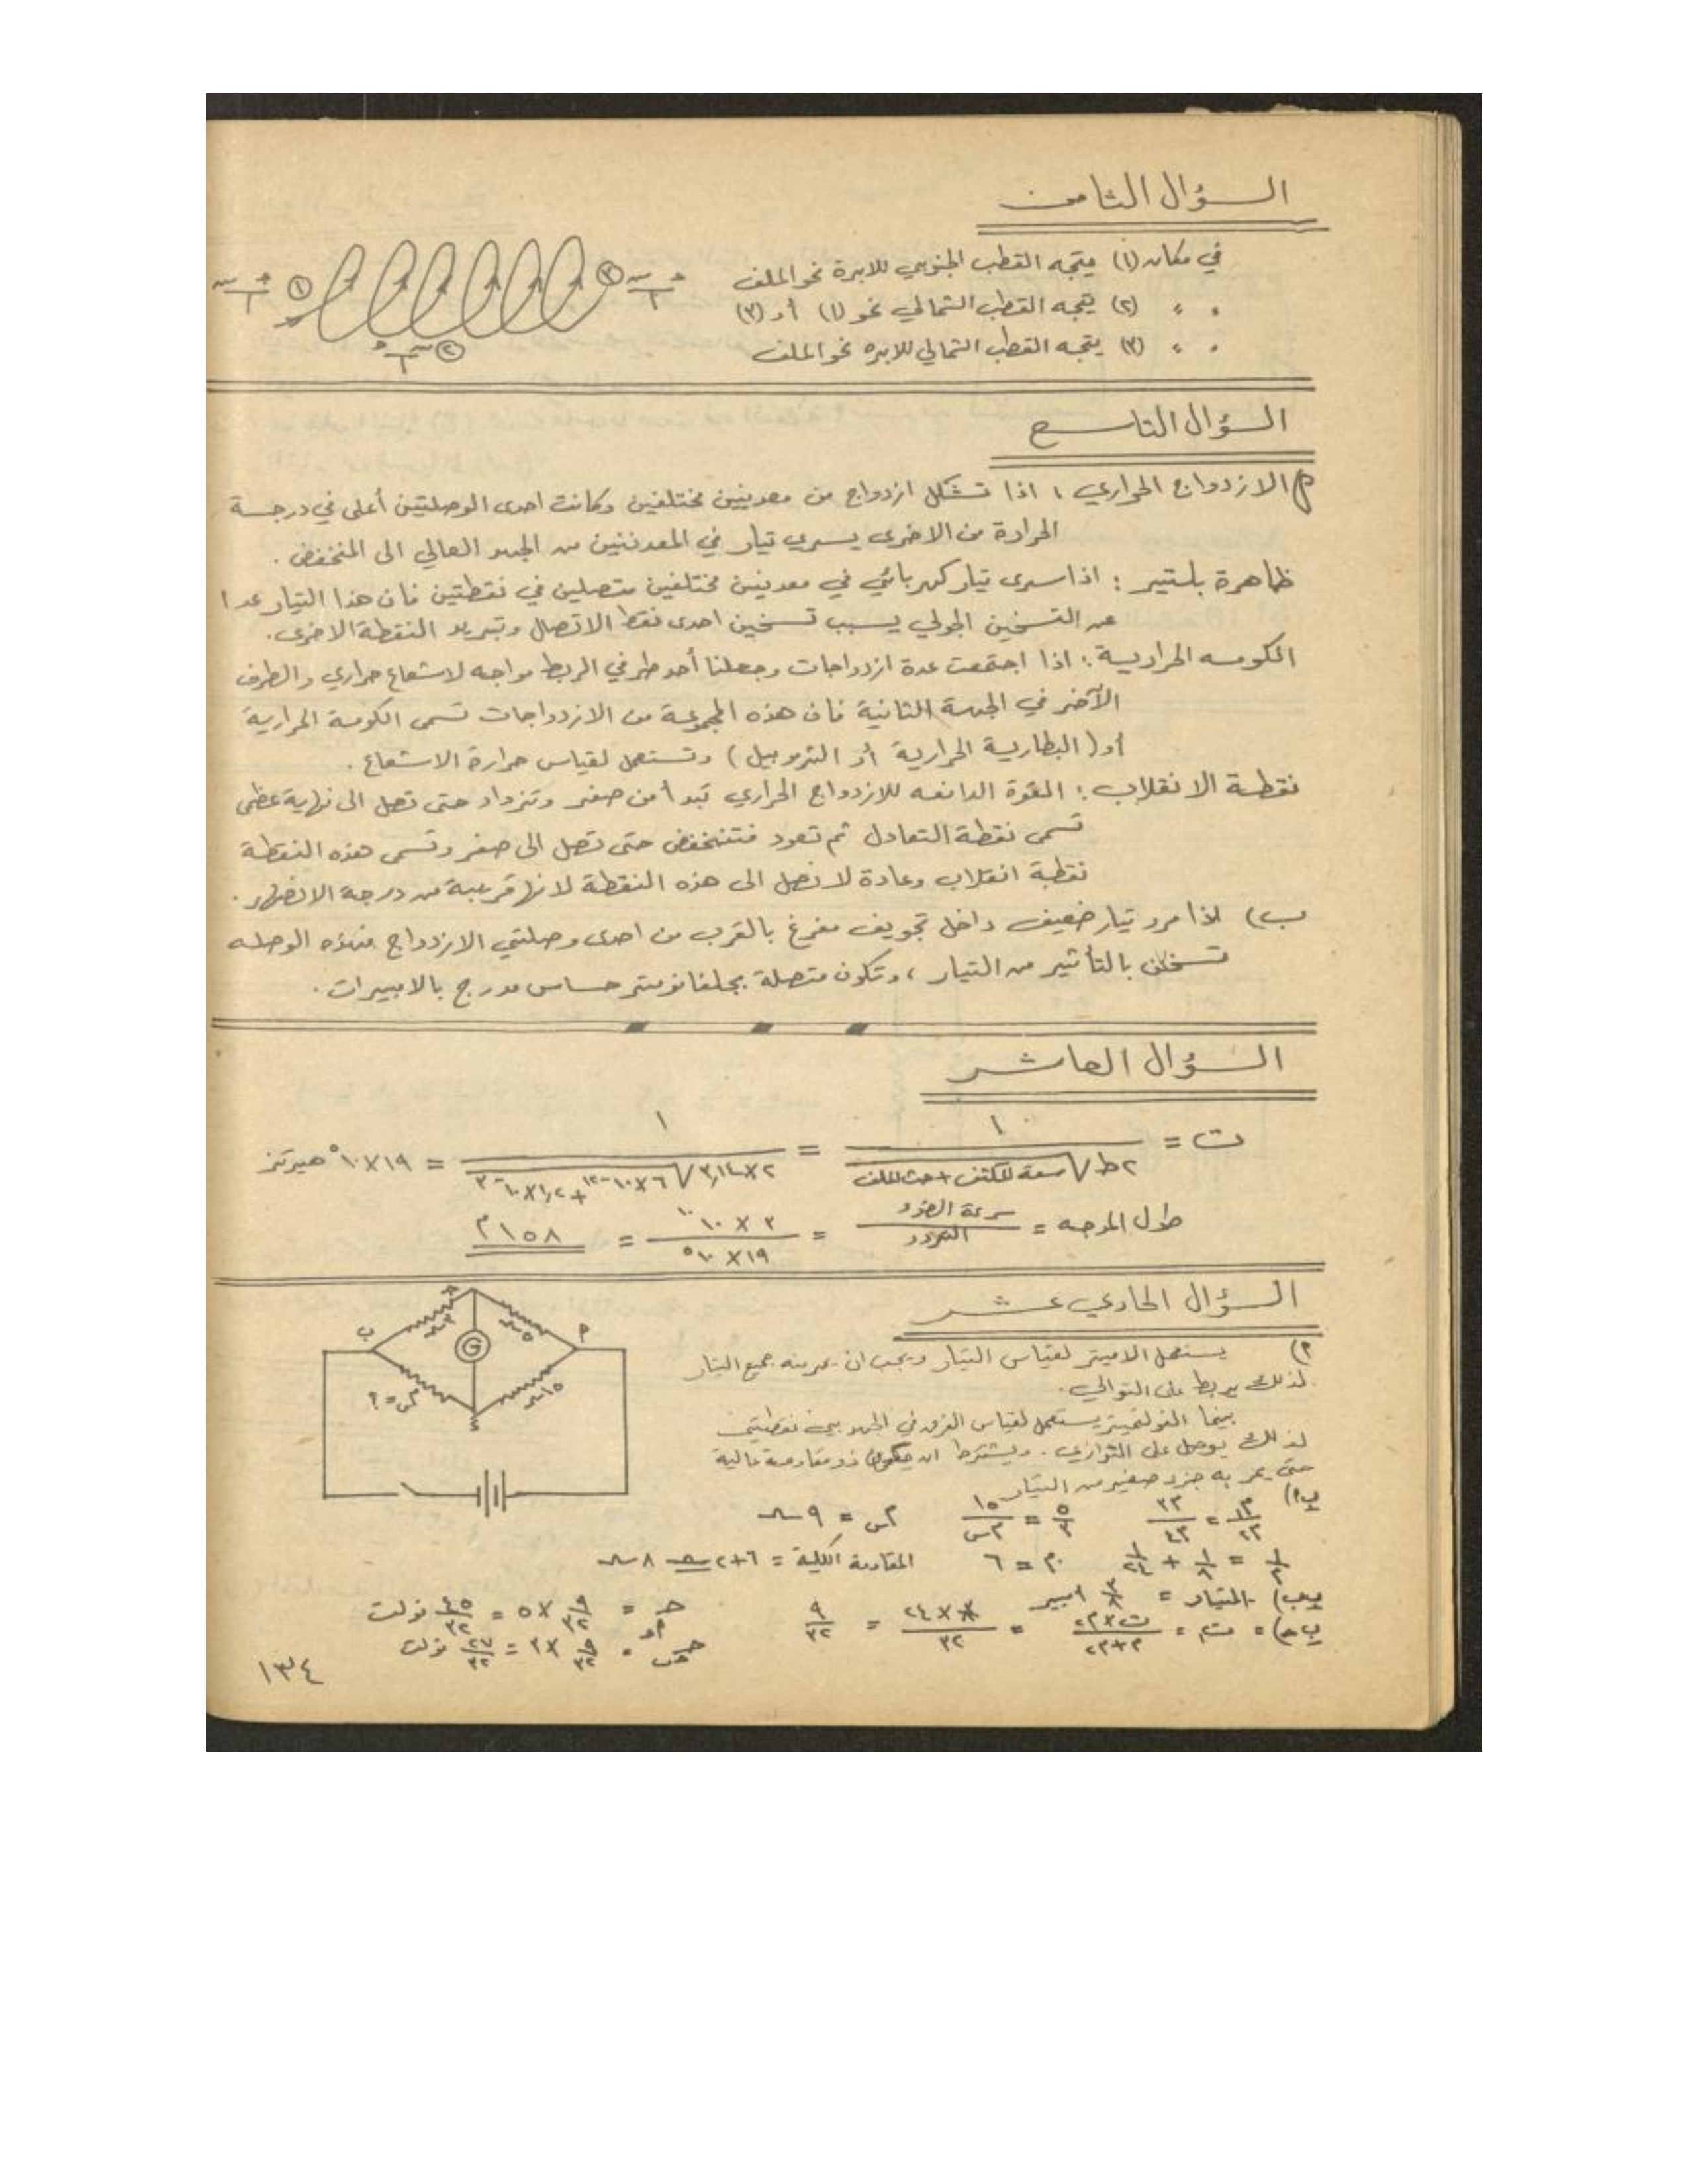 السؤال الثامن
في مكان (١) يتجه القطب الجنوبي للابرة نحو الملف
" " (٢) يتجه القطب الشمالي نحو (١) أو (٣)
" " (٣) يتجه القطب الشمالي للابره نحو الملف
١
٢
٣
السؤال التاسع
الازدواج الحراري : اذا تشكل ازدواج من معدنين مختلفين وكانت احدى الوصلتين أعلى في درجة
الحرارة من الاخرى يسري تيار في المعدنين من الجهد العالي الى المنخفض .
ظاهرة بلتير : اذا سرى تيار كهربائي في معدنين مختلفين متصلين في نقطتين فان هذا التيار عدا
عن التسخين الجولي يسبب تسخين احدى نقط الاتصال وتبريد النقطة الاخرى .
الكومه الحرارية : اذا اجتمعت عدة ازدواجات وجعلنا أحد طرفي الربط مواجه لاشعاع حراري والطرف
الآخر في الجهة الثانية فان هذه المجموعة من الازدواجات تسمى الكومة الحرارية
أو ( البطارية الحرارية أو الترموبيل ) وتستعمل لقياس حرارة الاشعاع .
نقطة الانقلاب : القوة الدافعه للازدواج الحراري تبدأ من صفر وتزداد حتى تصل الى نهاية عظمى
تسمى نقطة التعادل ثم تعود فتنخفض حتى تصل الى صفر وتسمى هذه النقطة
نقطة انقلاب وعادة لا نصل الى هذه النقطة لانها قريبة من درجة الانصهار .
ب) اذا مرر تيار ضعيف داخل تجويف مفرغ بالقرب من احدى وصلتي الازدواج فهذه الوصله
تسخن بالتأثير من التيار ، وتكون متصلة بجلفانومتر حساس مدرج بالامبيرات .
السؤال العاشر
ت = ١ / ٢ط√سعة المكثف + حث الملف = ١ / ٢×٣,١٤√٦×١٠⁻¹² + ١,٢×١٠⁻³ = ١٩×١٠⁵ هيرتز
طول الموجه = سرعة الضوء / التردد = ٣×١٠¹⁰ / ١٩×١٠⁵ = ١٥٨م
السؤال الحادي عشر
م) يستعمل الاميتر لقياس التيار ويجب ان يمر منه جميع التيار
لذلك يربط على التوالي .
بينما الفولتميتر يستعمل لقياس الفرق في الجهد بين نقطتين
لذلك يوصل على التوازي . ويشترط ان يكون ذو مقاومة عالية
حتى يمر به جزء صغير من التيار
G
م١ / م٢ = م٣ / م٤ ٥/٣ = ١٥/م س م س = ٩
١/م = ١/٨ + ١/٢٤ م = ٦ المقاومة الكلية = ٦+٢ = ٨
التيار = ٣/٨ امبير
= ٣×٢٤ / ٣٢ = ٩/٣٢
= ٩/٣٢ × ٥ = ٤٥/٣٢ فولت
= ٩/٣٢ × ٣ = ٢٧/٣٢ فولت
١٣٤